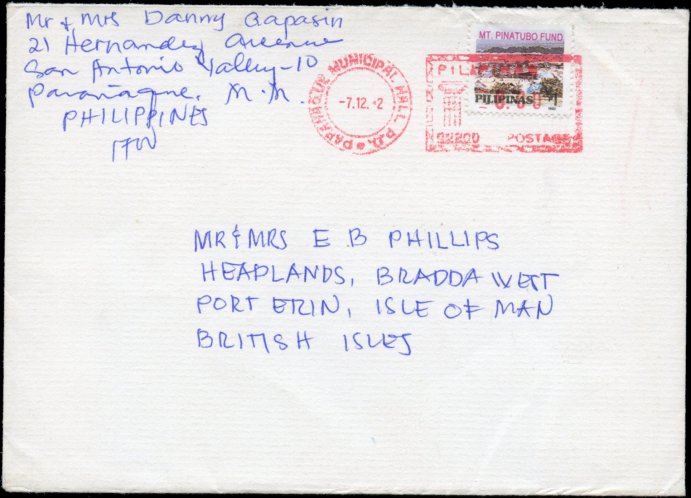 Mr & Mrs Danny Gapasin
21 Hernandez Avenue
San Antonio Valley-10
Parañaque, M.M.
PHILIPPINES
1700
MT. PINATUBO FUND
PILIPINAS
PARAÑAQUE MUNICIPAL HALL P.O.
-7.12. 2
PILIPINAS
POSTAGE
MR & MRS E B PHILLIPS
HEADLANDS, BRADDA WEST
PORT ERIN, ISLE OF MAN
BRITISH ISLES